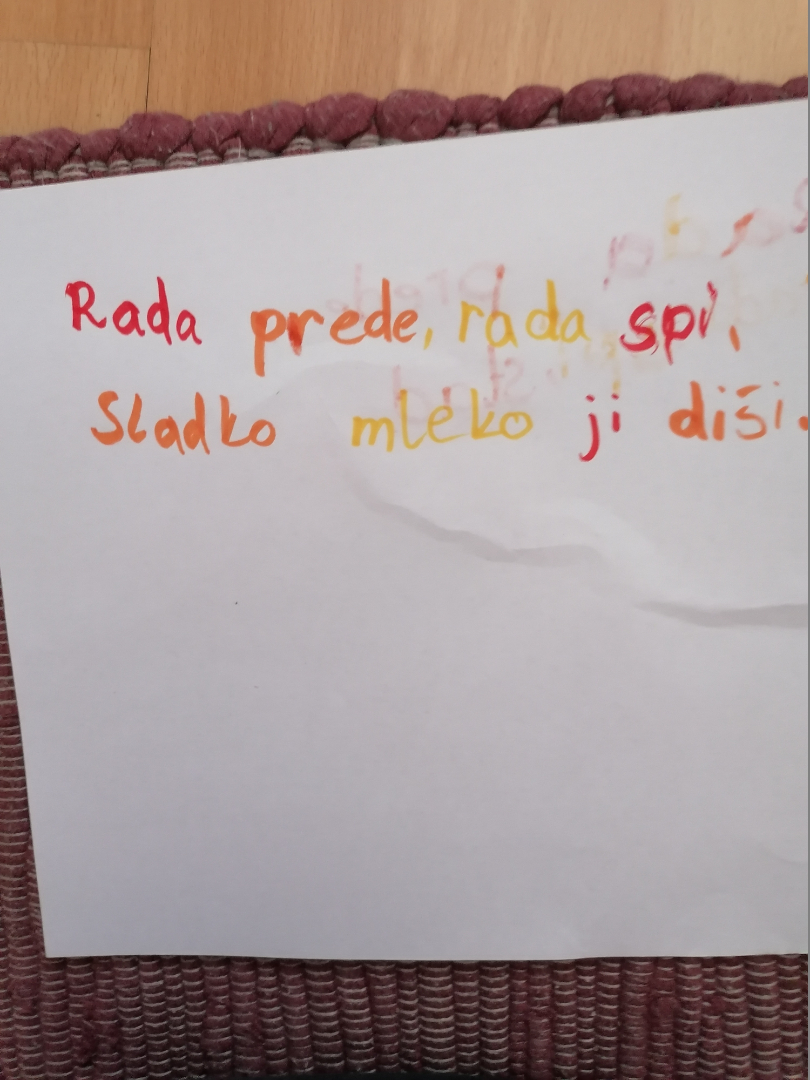 Rada prede, rada spi,
Sladko mleko ji diši.